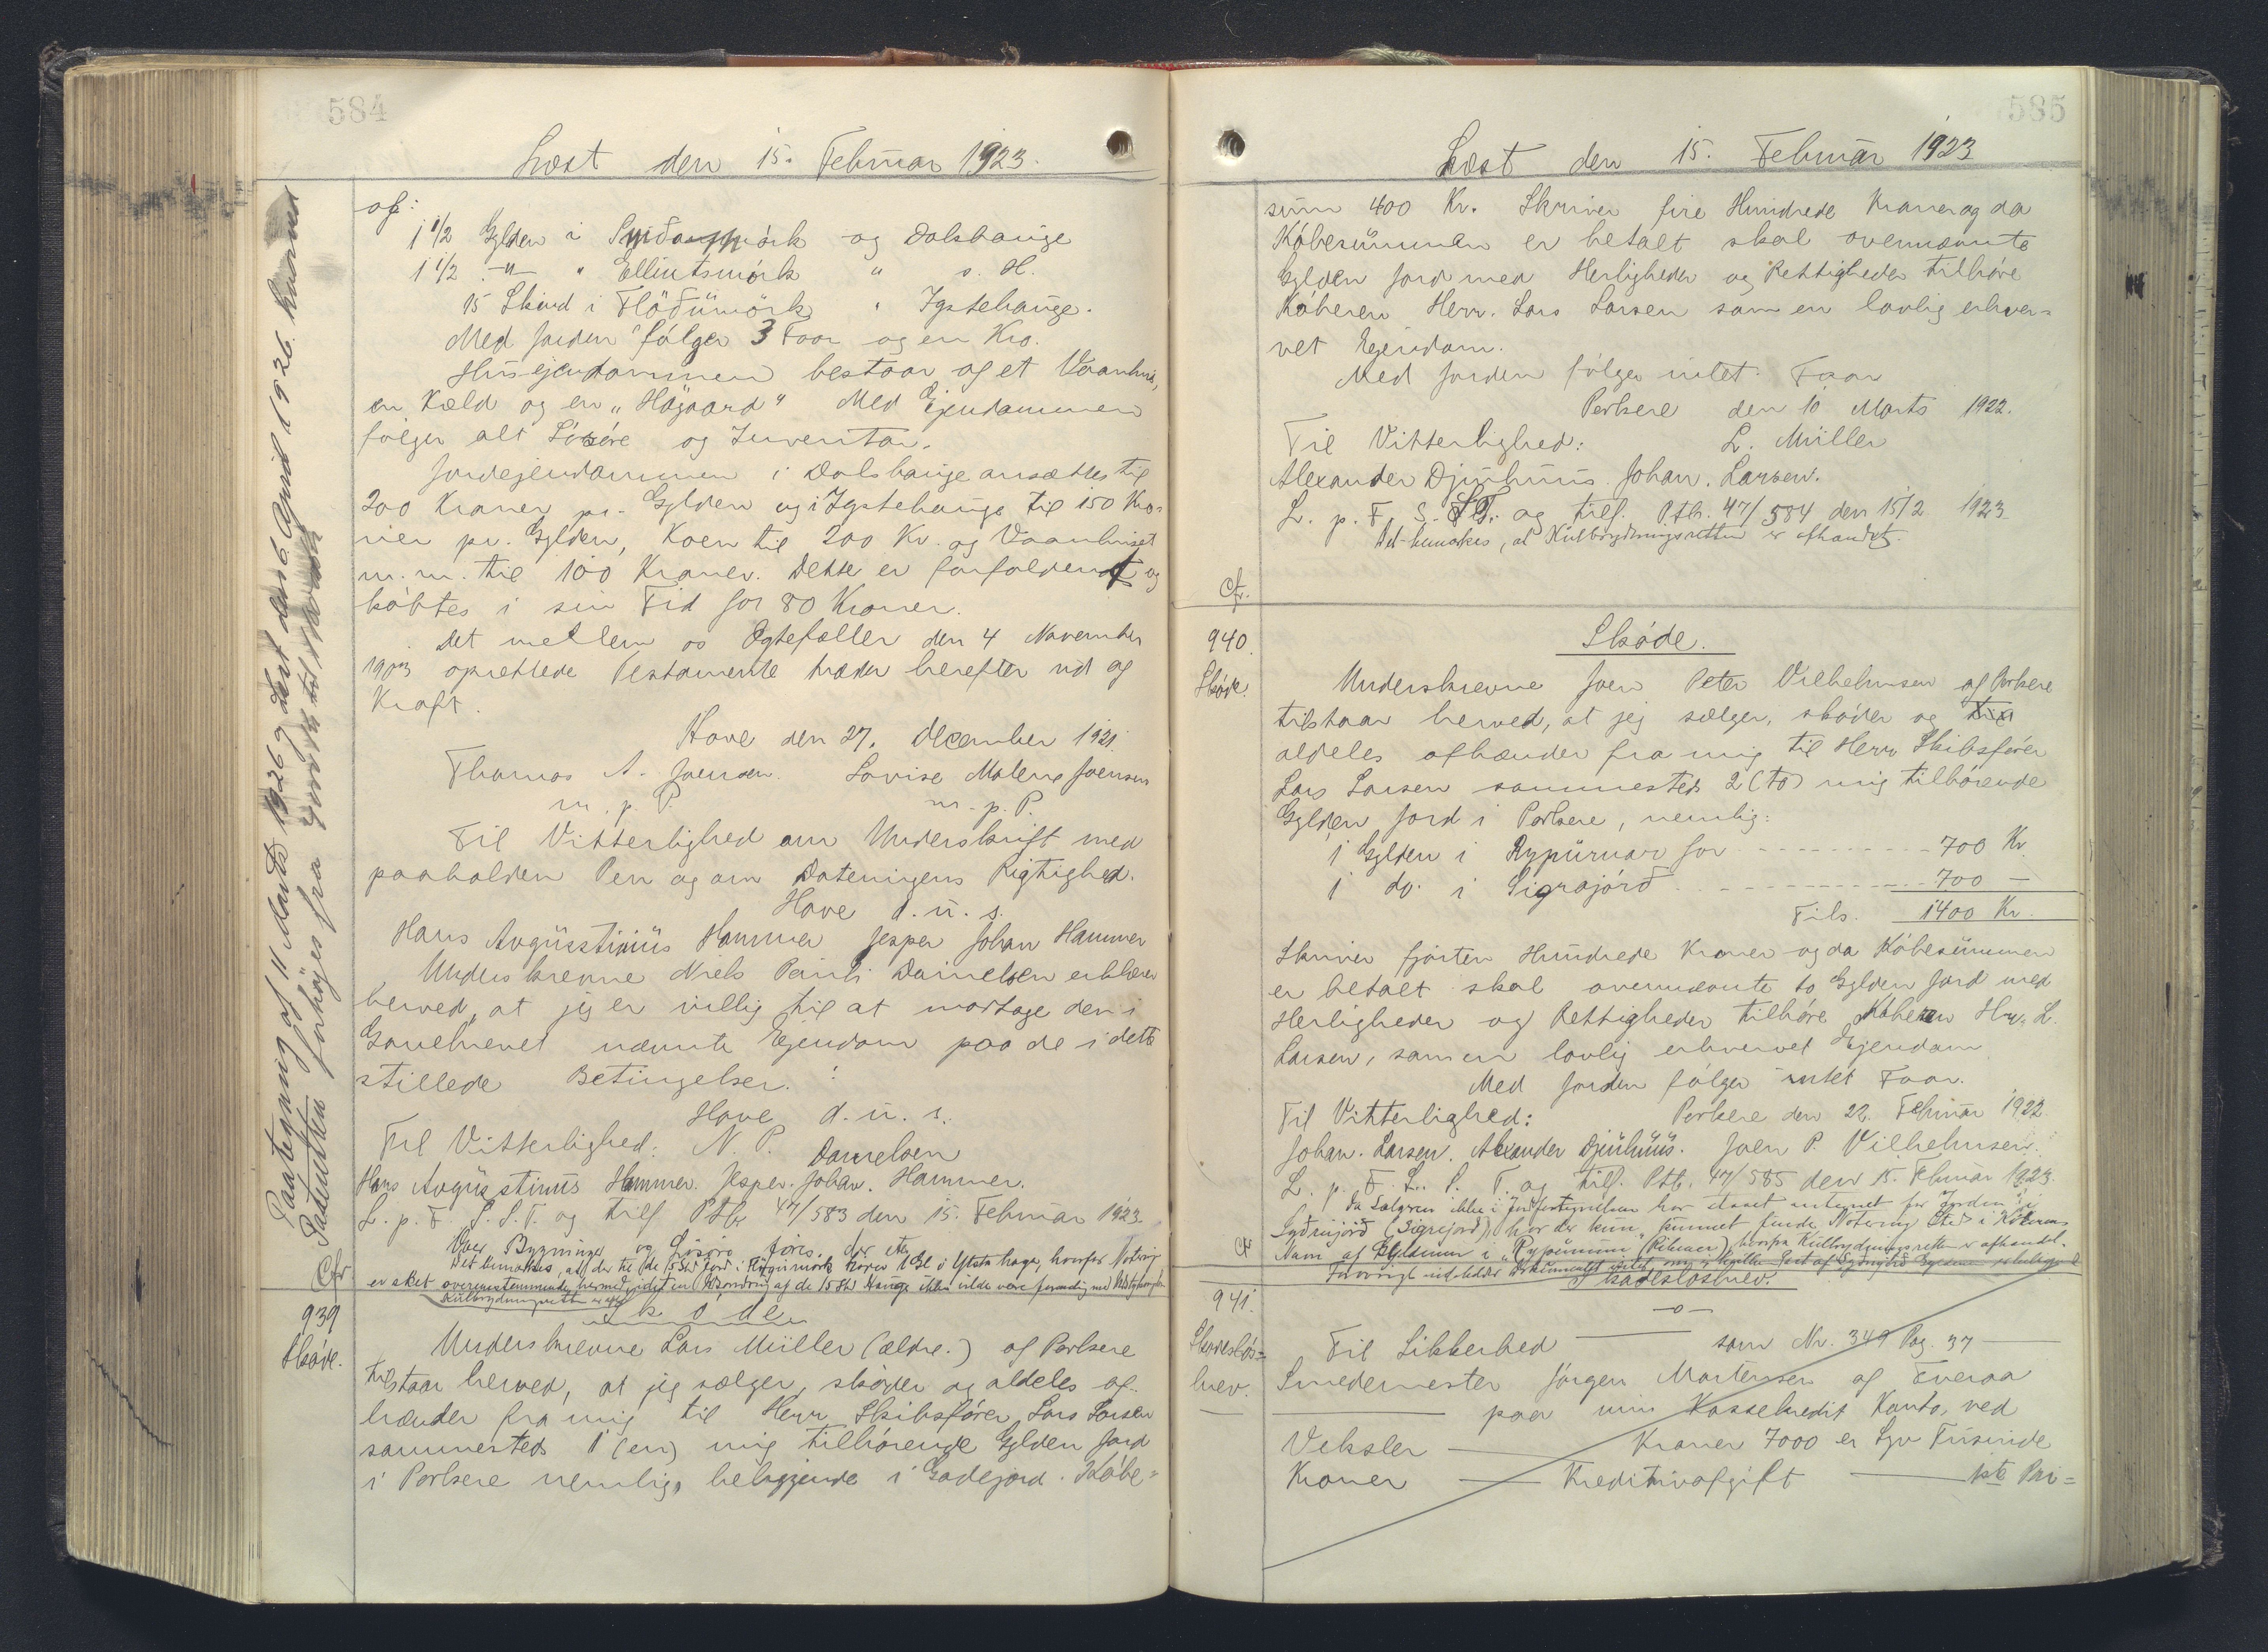 584
Læst den 15. Februar 1923.
af:
1 1/2 Gylden i og Dalshauge
1 1/2 -"- " Ellintsmörk " s. H.
15 Skind i Flöðumörk " Ystehauge.
Med Jorden følger 3 Faar og en Ko.
Husejendommen bestaar af et Vaanhus,
en Kæld og en "Høgaard" Med Ejendommen
følger alt Løsøre og Inventar.
Jordejendommen i Dalshauge ansættes til
200 Kroner pr. Gylden og i Ystehauge til 150 Kro-
ner pr. Gylden, Koen til 200 Kr. og Vaanhuset
m.m. til 100 Kroner. Dette er forfaldent og
købtes i sin Tid for 80 Kroner.
Det mellem os Ægtefæller den 4 November
1903 oprettede Testamente træder herefter ud af
Kraft.
Hove den 27. December 1921.
Thomas A. Joensen. Lovise Malene Joensen
m. p. P. m. p. P.
Til Vitterlighed om Underskrift med
paaholden Pen og om Dateringens Rigtighed.
Hove d. u. s.
Hans Augustinus Hammer Jesper Johan Hammer
Underskrevne Niels Pauli Danielsen erklærer
herved, at jeg er villig til at modtage den i
Gavebrevet nævnte Ejendom paa de i dette
stillede Betingelser.
Hove d. u. s.
Til Vitterlighed: N. P. Danielsen
Hans Augustinus Hammer. Jesper Johan. Hammer.
L. p. F. S. S. T. og tilf Ptb 47/583 den 15. Februar 1923.
Over Bygninger og Løsøre føres der
Det bemærkes, at der til de 15 Sk. Jord i hører 1 Gl i Ytsta hage, hvorfor Notering
er sket overensstemmende hermed, idet en af de 15 Sk Hauge ikke vilde være
Kulbrydningsretten er
939
Skøde.
Skøde
Underskrevne Lars Müller (ældre.) af Porkere
tilstaar herved, at jeg sælger, skøder og aldeles af-
hænder fra mig til Herr Skibsfører Lars Larsen
sammesteds 1 (en) mig tilhørende Gylden Jord
i Porkere nemlig, beliggende i Gadejord. Købe=
Paategning af 11 Marts 1926 læst den 6 April 1926.
forhøjes fra til
Cfr
585
Læst den 15. Februar 1923
sum 400 Kr. Skriver fire Hundrede Kroner og da
Købesummen er betalt skal ovennævnte
Gylden Jord med Herligheder og Rettigheder tilhøre
Køberen Herr. Lars Larsen som en lovlig erhver=
vet Ejendom.
Med Jorden følger intet Faar
Porkere den 10 Marts 1922.
Til Vitterlighed: L. Müller
Alexander Djurhuus. Johan. Larsen.
L. p. F. S. S.T. og tilf. Ptb. 47/584 den 15/2 1923
Det bemærkes, at Kulbrydningsretten er afhændet.
Cfr.
940.
Skøde.
Skøde.
Underskrevne Joen Peter Vilhelmsen af Porkere
tilstaar herved, at jeg sælger, skøder og
aldeles afhænder fra mig til Herr Skibsfører
Lars Larsen sammesteds 2 (to) mig tilhørende
Gylden Jord i Porkere, nemlig:
1 Gylden i Rypurnar for 700 Kr
1 do. i Sigrajørð 700 —
Tils. 1400 Kr.
Skriver fjorten Hundrede Kroner og da Købesummen
er betalt skal ovennævnte to Gylden Jord med
Herligheder og Rettigheder tilhøre Køberen Hr. L.
Larsen, som en lovlig erhvervet Ejendom
Med Jorden følger intet Faar.
Til Vitterlighed: Porkere den 22. Februar 1922
Johan. Larsen. Alexander Djurhuus. Joen P. Vilhelmsen.
L. p. F. S. S. T. og tilf. Ptb. 47/585 den 15. Februar 1923.
Da Sælgeren ikke i har staaet antegnet for Jorden i
(Sigrejord), har der kun kunnet finde Notering Sted i Køberens
Navn af Gyldenen i hvorfra Kulbrydningsretten er afhændet.
Cfr
941.
Skadesløs=
brev.
Skadesløsbrev.
—o—
Til Sikkerhed — som Nr. 349 Pag. 37 —
Smedemester Jørgen Mortensen af Tveraa
— paa min Kassekredit Konto, ved
Veksler — Kroner 7000 er Syv Tusinde
Kroner — Kreditivafgift — 1ste Pri=